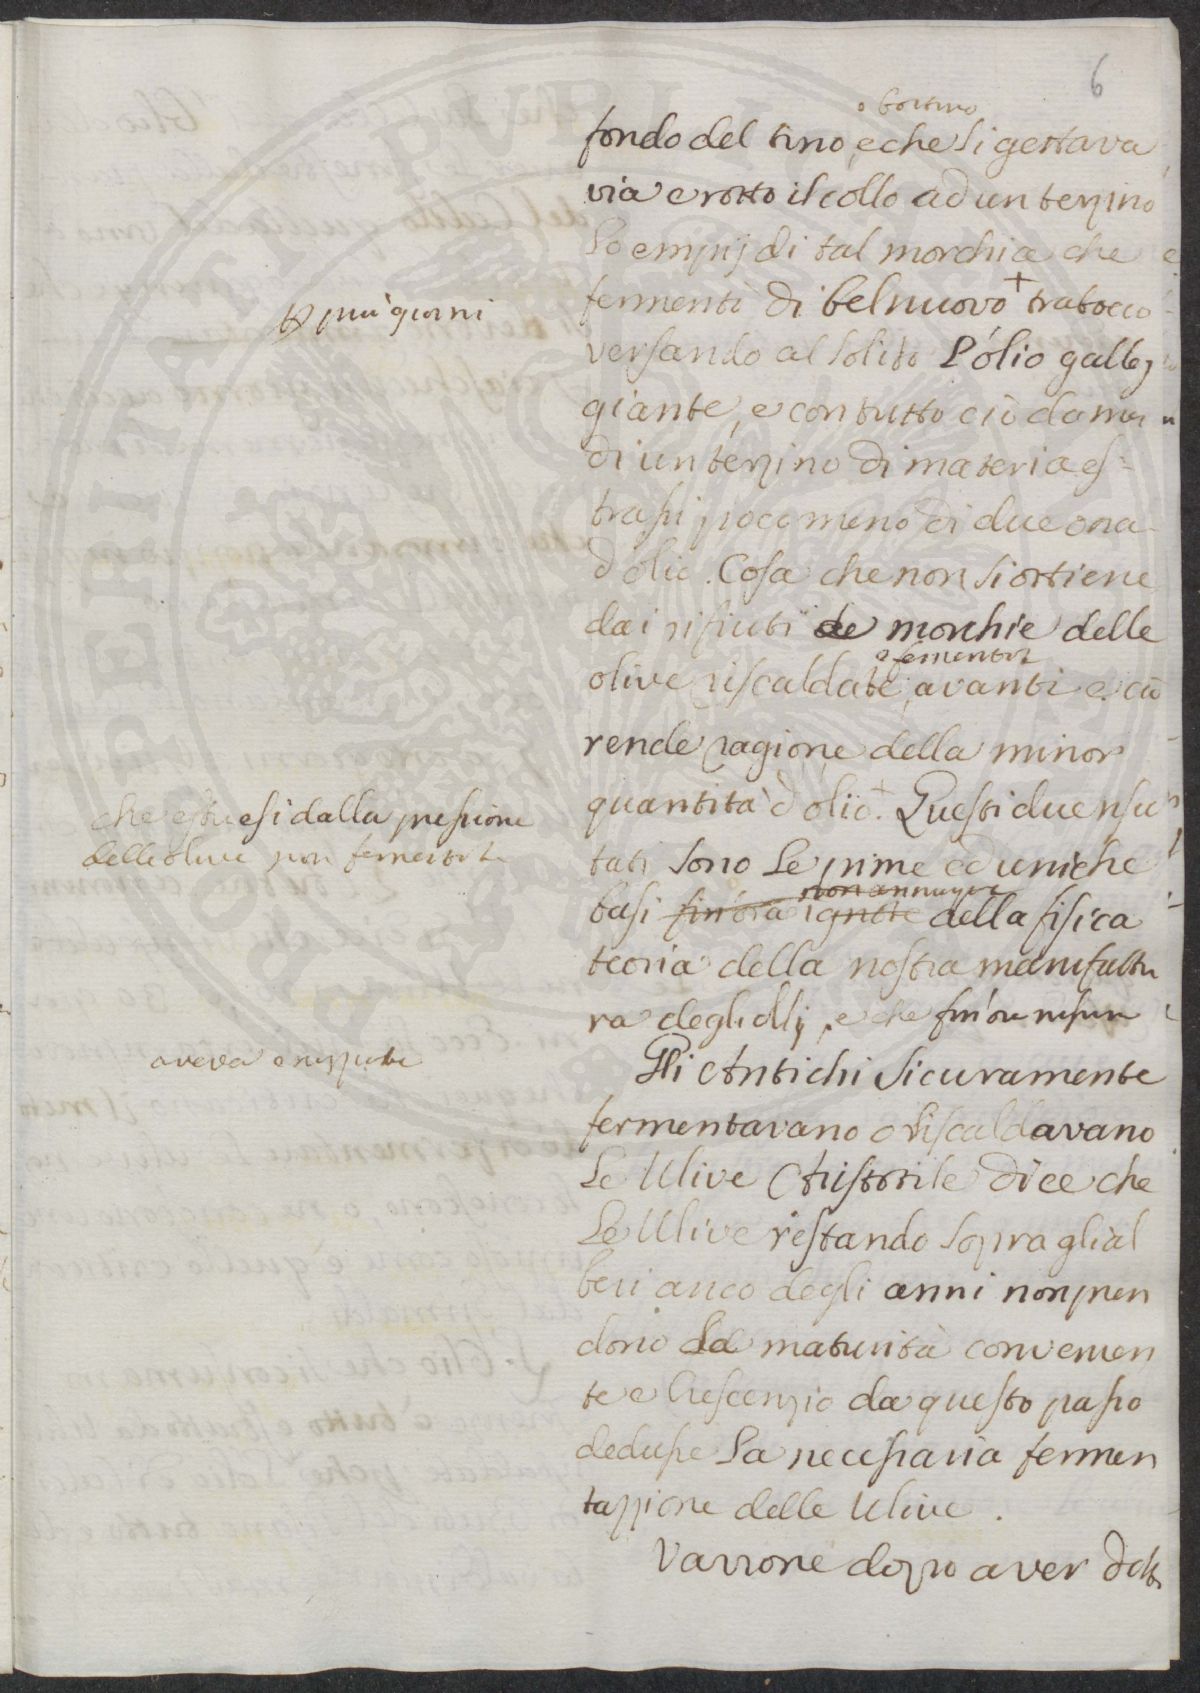 6
o bottino
fondo del tino, e che si gettava
via e rotto il collo ad un terzino
lo empij di tal morchia che
fermentò di bel nuovo + trabocco
+ più giorni
versando al solito l'olio galleg
giante, e con tutto ciò da me
di un terzino di materia es=
trassi poco meno di due
d'olio. Cosa che non si ottiene
dai rifiuti de morchie delle
o fermentate
olive riscaldate, avanti e ciò
rende ragione della minor
quantità d'olio +. Questi due risu
che estraesi dalla pressione
delle olive non fermentate
tati sono le prime ed uniche
non ann
basi fin'ora ignote della fisica
teoria della nostra manifattu
ra degli olij, e che fin'ora nessun
aveva
Gli Antichi sicuramente
fermentavano o riscaldavano
le Ulive Aristotile dice che
le Ulive restando sopra gli al
beri anco degli anni non pren
dono la maturità convenien
te e Crescenzio da questo passo
dedusse la necessaria fermen
tazzione delle Ulive.
Varrone dopo aver detto